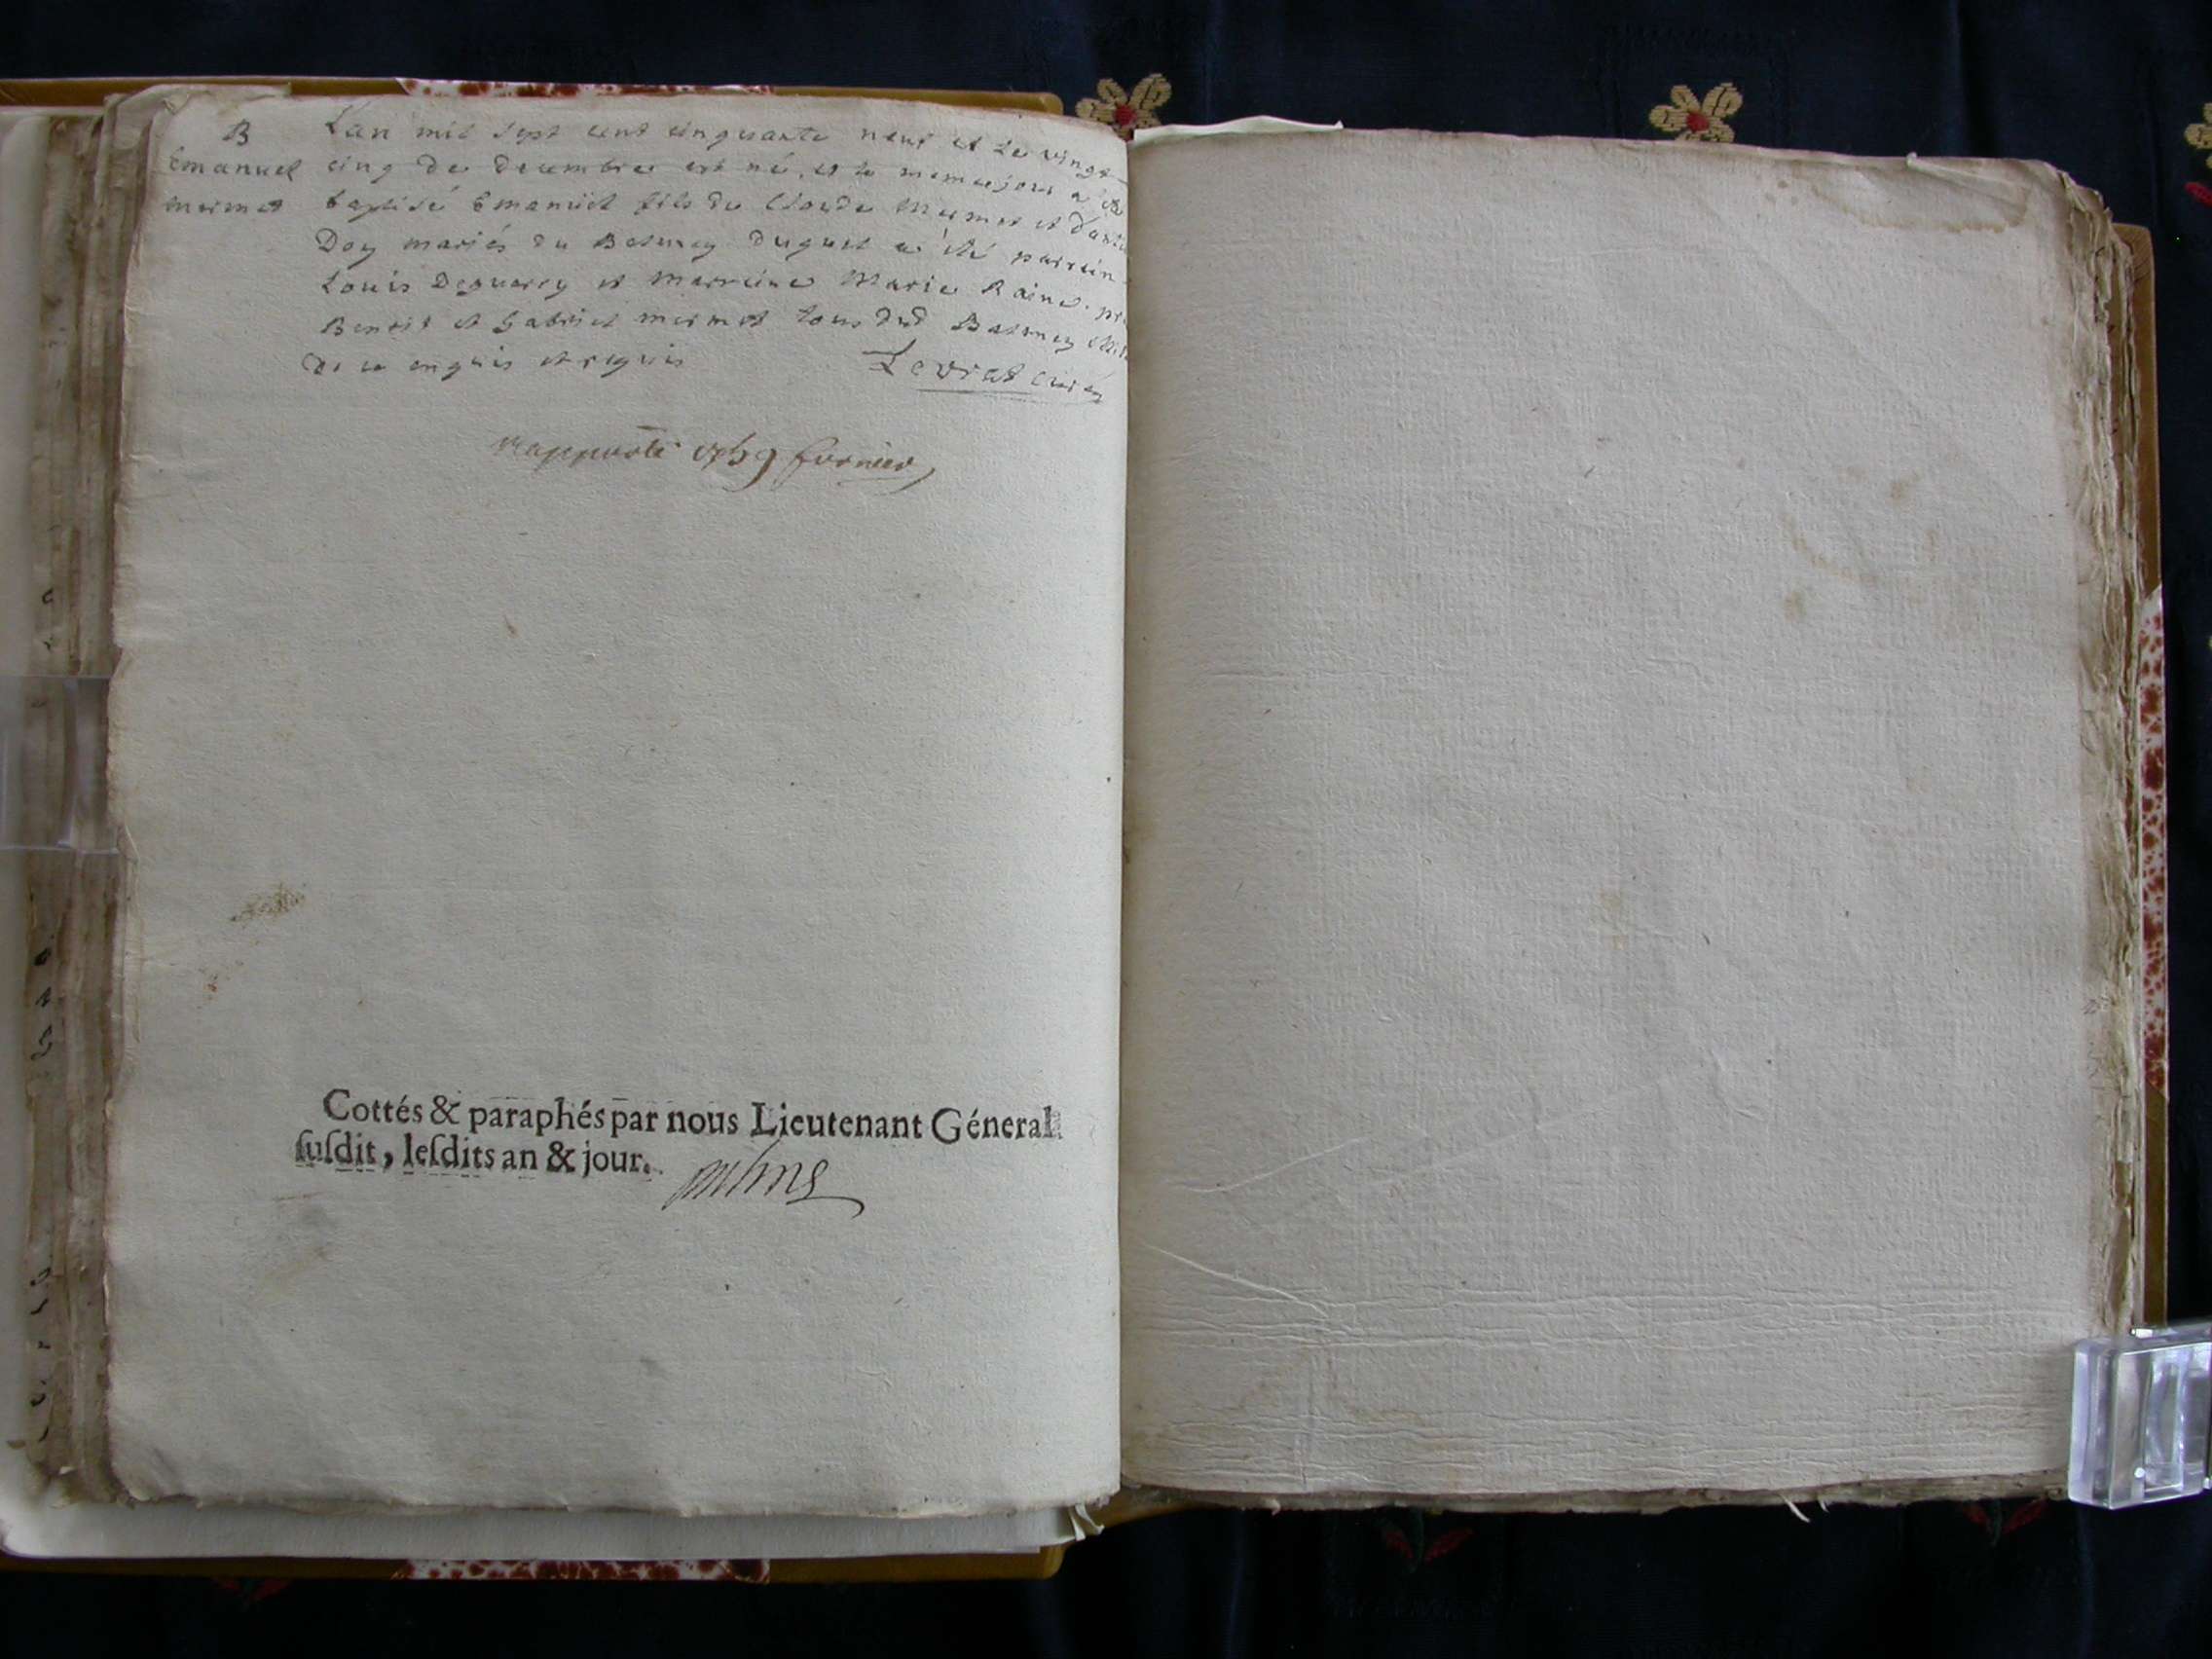 B
Emanuel
mermet
Lan mil sept cent cinquante neuf et le vingt
cinq de decembre est né, et le meme jour a eté
baptisé Emanuel fils de Claude Mermet et
Doy mariés du Batmey duquel a été parrein
Louis Deguerry et marreine Marie Raine.
Benoit et Gabriel mermet tous dud Batmey
de ce enquis et requis
Levrat curé
rapporté 1759 fornier
Cottés & paraphés par nous Lieutenant Géneral
ſuſdit, leſdits an & jour.